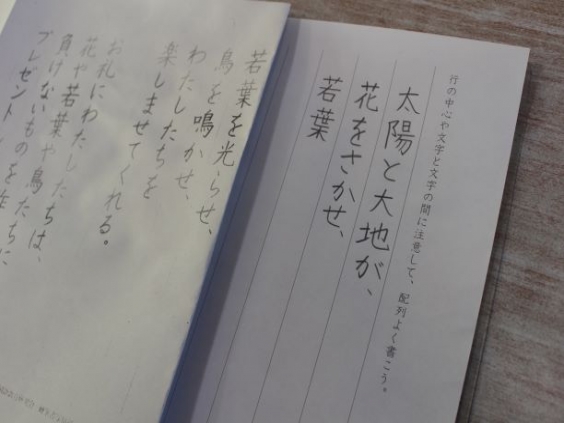 行の中心や文字と文字の間に注意して、配列よく書こう。
太陽と大地が、
花をさかせ、
若葉
若葉を光らせ、
鳥を鳴かせ、
わたしたちを
楽しませてくれる。
お礼にわたしたちは、
花や若葉や鳥たちに
負けないものを作
プレゼント